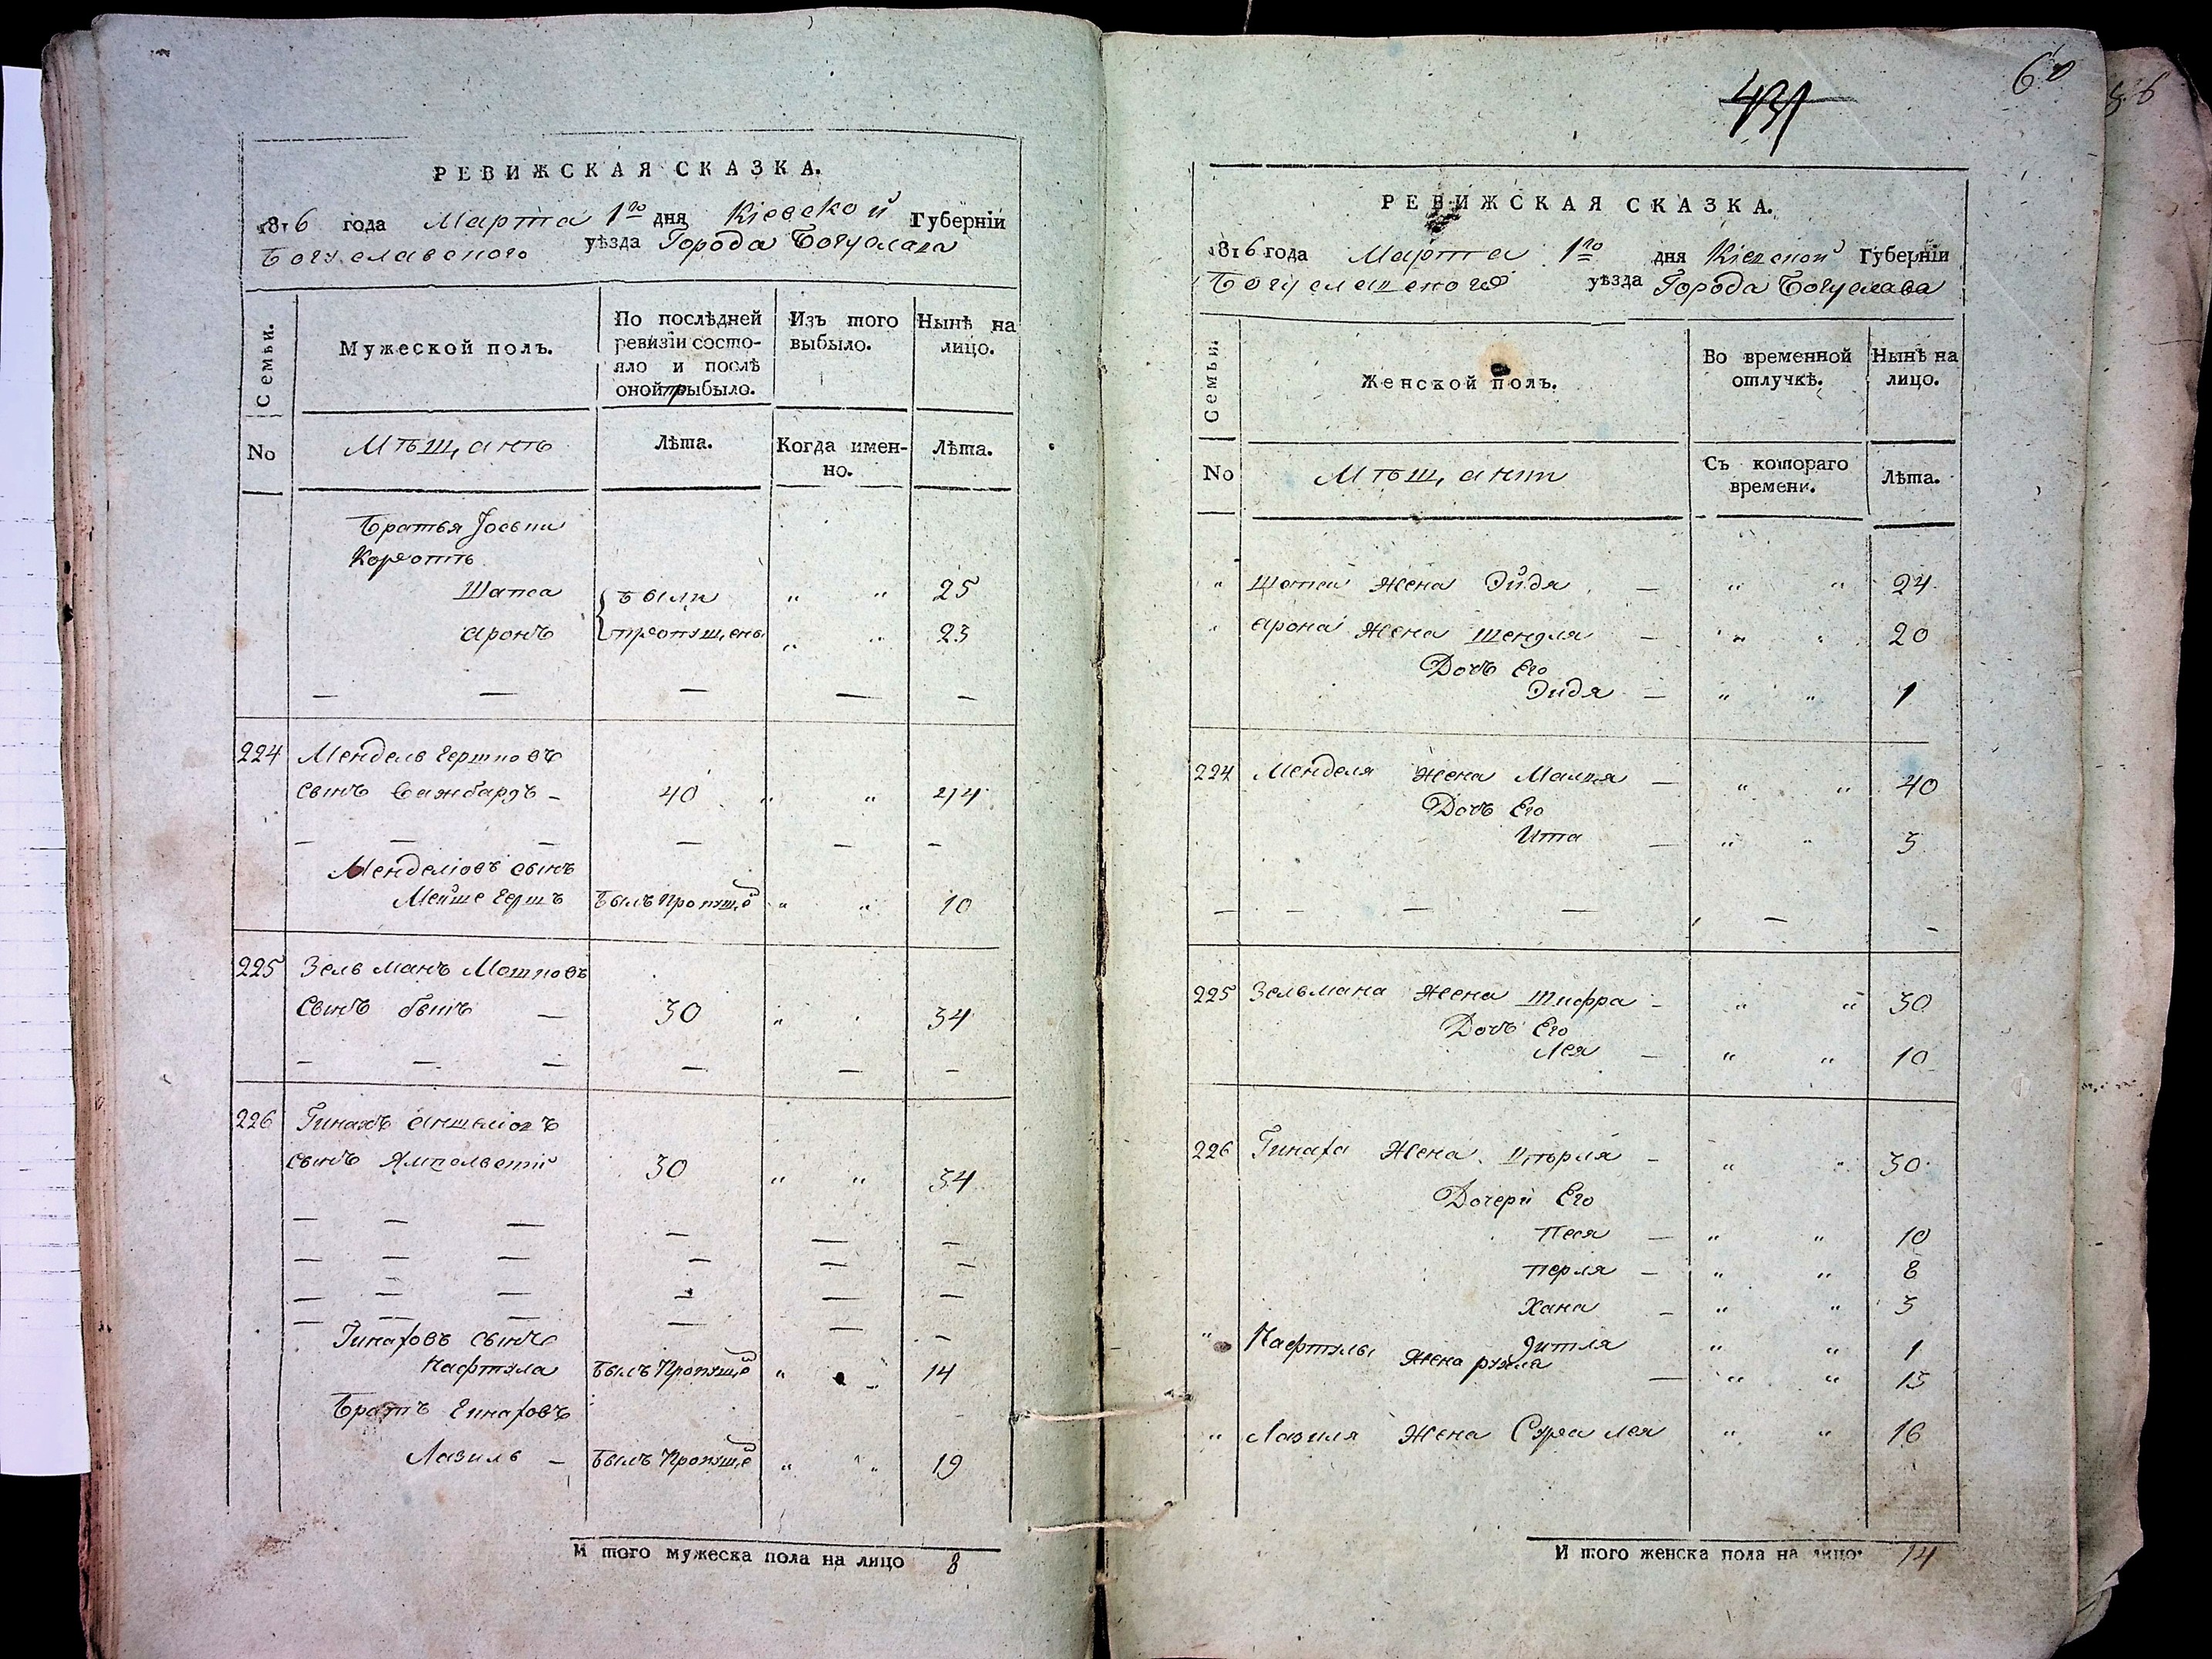 РЕВИЖСКАЯ СКАЗКА.
1816 года Марта 1го дня Кіевской Губерніи
Богуславского уѣзда Города Богуслава
Семьи. Мужеской полъ. По послѣдней ревизіи состояло и послѣ оной прибыло. Изъ того выбыло. Нынѣ на лицо.
No Мѣщанъ Лѣта. Когда именно. Лѣта.
Братья Іосьпи
Шапса { были " " 25
Аронъ { пропущены " " 23
— — — — —
224 Мендель Гершковъ
Сынъ 40 " " 44
— — — — — —
Менделіовъ сынъ
Мейше Гершъ Былъ Пропущ. " " 10
225 Зельманъ Мошковъ
Сынъ — 30 " " 34
— — — — — —
226 Гинахъ Аншеліовъ
Сынъ Ямпольскій 30 " " 34
— — — — — —
— — — — — —
— — — — — —
— — — — — —
Гинаховъ Сынъ
Нафтула Былъ Пропущ. " " 14
Братъ Гинаховъ
Лазиль — Былъ Пропущ. " " 19
И того мужеска пола на лицо 8
431
60
86
РЕВИЖСКАЯ СКАЗКА.
1816 года Марта 1го дня Кіевской Губерніи
Богуславского уѣзда Города Богуслава
Семьи. Женской полъ. Во временной отлучкѣ. Нынѣ на лицо.
No Мѣщанъ Съ котораго времени. Лѣта.
" Жена Эйдя — " " 24
" Арона Жена Шендля — " " 20
Дочь Его
Эидя — " " 1
224 Менделя Жена Малка — " " 40
Дочь Его
Ита — " " 3
— — — — — —
225 Зельмана Жена Шифра — " " 30
Дочь Его
Лея — " " 10
226 Гинаха Жена — " " 30
Дочери Его
Песя — " " 10
Перля — " " 8
Хана — " " 3
Зитля " " 1
" Нафтулы Жена Рухля — " " 15
" Лазиля Жена Сура Лея " " 16
И того женска пола на лицо. 14